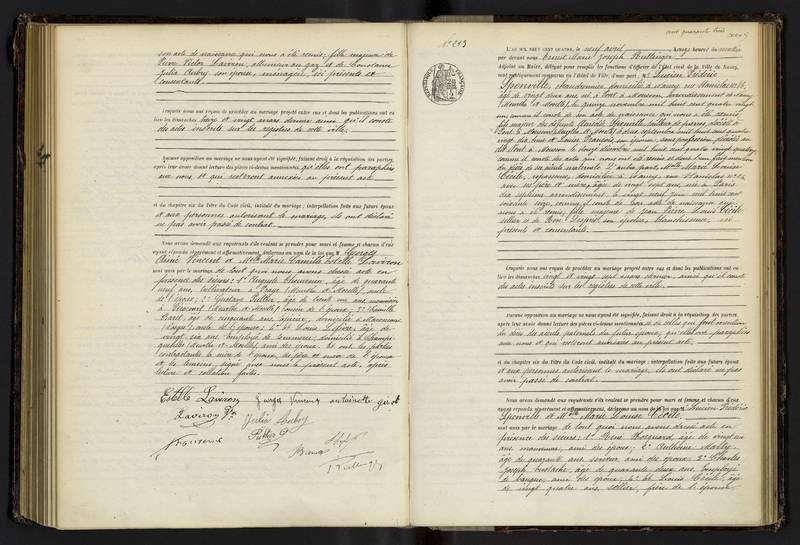 son acte de naissance qui nous a été remis; fille majeure de
Pierre Victor Laviron, allumeur au gaz et de Constance
Julia Aubry son épouse, ménagère, ici présents et
consentants.
Lesquels nous ont requis de procéder au mariage projeté entre eux et dont les publications ont eu
lieu les dimanches treize et vingt mars dernier ainsi qu'il conste
des actes inscrits sur les registres de cette ville.
Aucune opposition au mariage ne nous ayant été signifiée, faisant droit à la réquisition des parties,
après leur avoir donné lecture des pièces ci-dessus mentionnées qu'elles ont paraphées
avec nous et qui resteront annexées au présent acte
et du chapitre six du Titre du Code civil, intitulé du mariage; interpellation faite aux futurs époux
et aux personnes autorisant le mariage, ils ont déclaré
ne pas avoir passé de contrat.
Nous avons demandé aux requérants s'ils veulent se prendre pour mari et femme et chacun d'eux
ayant répondu séparément et affirmativement, déclarons au nom de la loi que M Georges
Aimé Vincent et Melle Marie Camille Estelle Laviron
sont unis par le mariage de tout quoi nous avons dressé acte en
présence des sieurs: 1° Auguste Thouvenin, âgé de quarante
neuf ans, cultivateur à Praye (Meurthe et Moselle), oncle
de l'époux; 2° Gustave Tullier, âgé de trente six ans
à (Meurthe et Moselle) cousin de l'époux; 3° Camille
âgé de cinquante ans, domicilié à
(Vosges), oncle de l'épouse; 4° et Louis Lefèvre, âgé de
vingt six ans, employé de commerce, domicilié à Champi-
gneulles (Meurthe et Moselle), ami des époux. Et ont les parties
contractantes la mère de l'époux, les père et mère de l'épouse
et les témoins signé avec nous le présent acte, après
lecture et collation faites.
Estelle Laviron
Vincent antoinette
Laviron
Julia Aubry
N° 213
cent quarante trois
L'AN MIL NEUF CENT QUATRE, le neuf avril, à onze heures du matin
par devant nous Ernest Marie Joseph Bullinger
Adjoint au Maire, délégué pour remplir les fonctions d'officier de l'état civil de la Ville de Nancy,
sont publiquement comparus en l'Hôtel de Ville, d'une part: M. Lucien Frédéric
Sponville, chaudronnier, domicilié à Nancy rue Stanislas
âgé de vingt deux ans, né à Pont à Mousson, arrondissement de Nancy
(Meurthe et Moselle), le quinze novembre mil huit cent quatre vingt
un, comme il conste de son acte de naissance qui nous a été remis;
fils majeur des défunts Sponville, tailleur de pierres, décédé à
Pont à Mousson (Meurthe et Moselle) le deux septembre mil huit cent quatre
vingt dix huit et Louise François, son épouse, sans profession, décédée au
dit Pont à Mousson le douze décembre mil huit cent quatre vingt quatorze
comme il conste des actes qui nous ont été remis
D'autre part, Melle Marie Louise
Cécile, repasseuse, domiciliée à Nancy, rue Stanislas n° 26
avec ses père et mère, âgée de vingt sept ans, née à Paris
dix septième arrondissement, le vingt
soixante seize, comme il conste de son acte de naissance qui
nous a été remis; fille majeure de Jean Pierre Louis Cécile
sellier et de son épouse, blanchisseuse, ici
présents et consentants.
Lesquels nous ont requis de procéder au mariage projeté entre eux et dont les publications ont eu
lieu les dimanches vingt et vingt sept mars dernier, ainsi qu'il conste
des actes inscrits sur les registres de cette ville.
Aucune opposition au mariage ne nous ayant été signifiée, faisant droit à la réquisition des parties,
après leur avoir donné lecture des pièces ci-dessus mentionnées et de celles qui font mention
du décès des aïeuls paternels du futur époux, qu'elles ont paraphées
avec nous et qui resteront annexées au présent acte,
et du chapitre six du Titre du Code civil, intitulé du mariage; interpellation faite aux futurs époux
et aux personnes autorisant le mariage, ils ont déclaré ne pas
avoir passé de contrat.
Nous avons demandé aux requérants s'ils veulent se prendre pour mari et femme et chacun d'eux
ayant répondu séparément et affirmativement, déclarons au nom de la loi que M Lucien Frédéric
Sponville et Melle Marie Louise Cécile,
sont unis par le mariage; de tout quoi nous avons dressé acte en
présence des sieurs: 1° René Hocquard, âgé de vingt
ans, manœuvre, ami des époux; 2° Anthoine Marly,
âgé de quarante ans, serrurier, ami des époux; 3° Charles
Joseph Eustache, âgé de quarante deux ans, employé
de banque, ami des époux; 4° et Louis Cécile, âgé
de vingt quatre ans, sellier, frère de l'épouse.